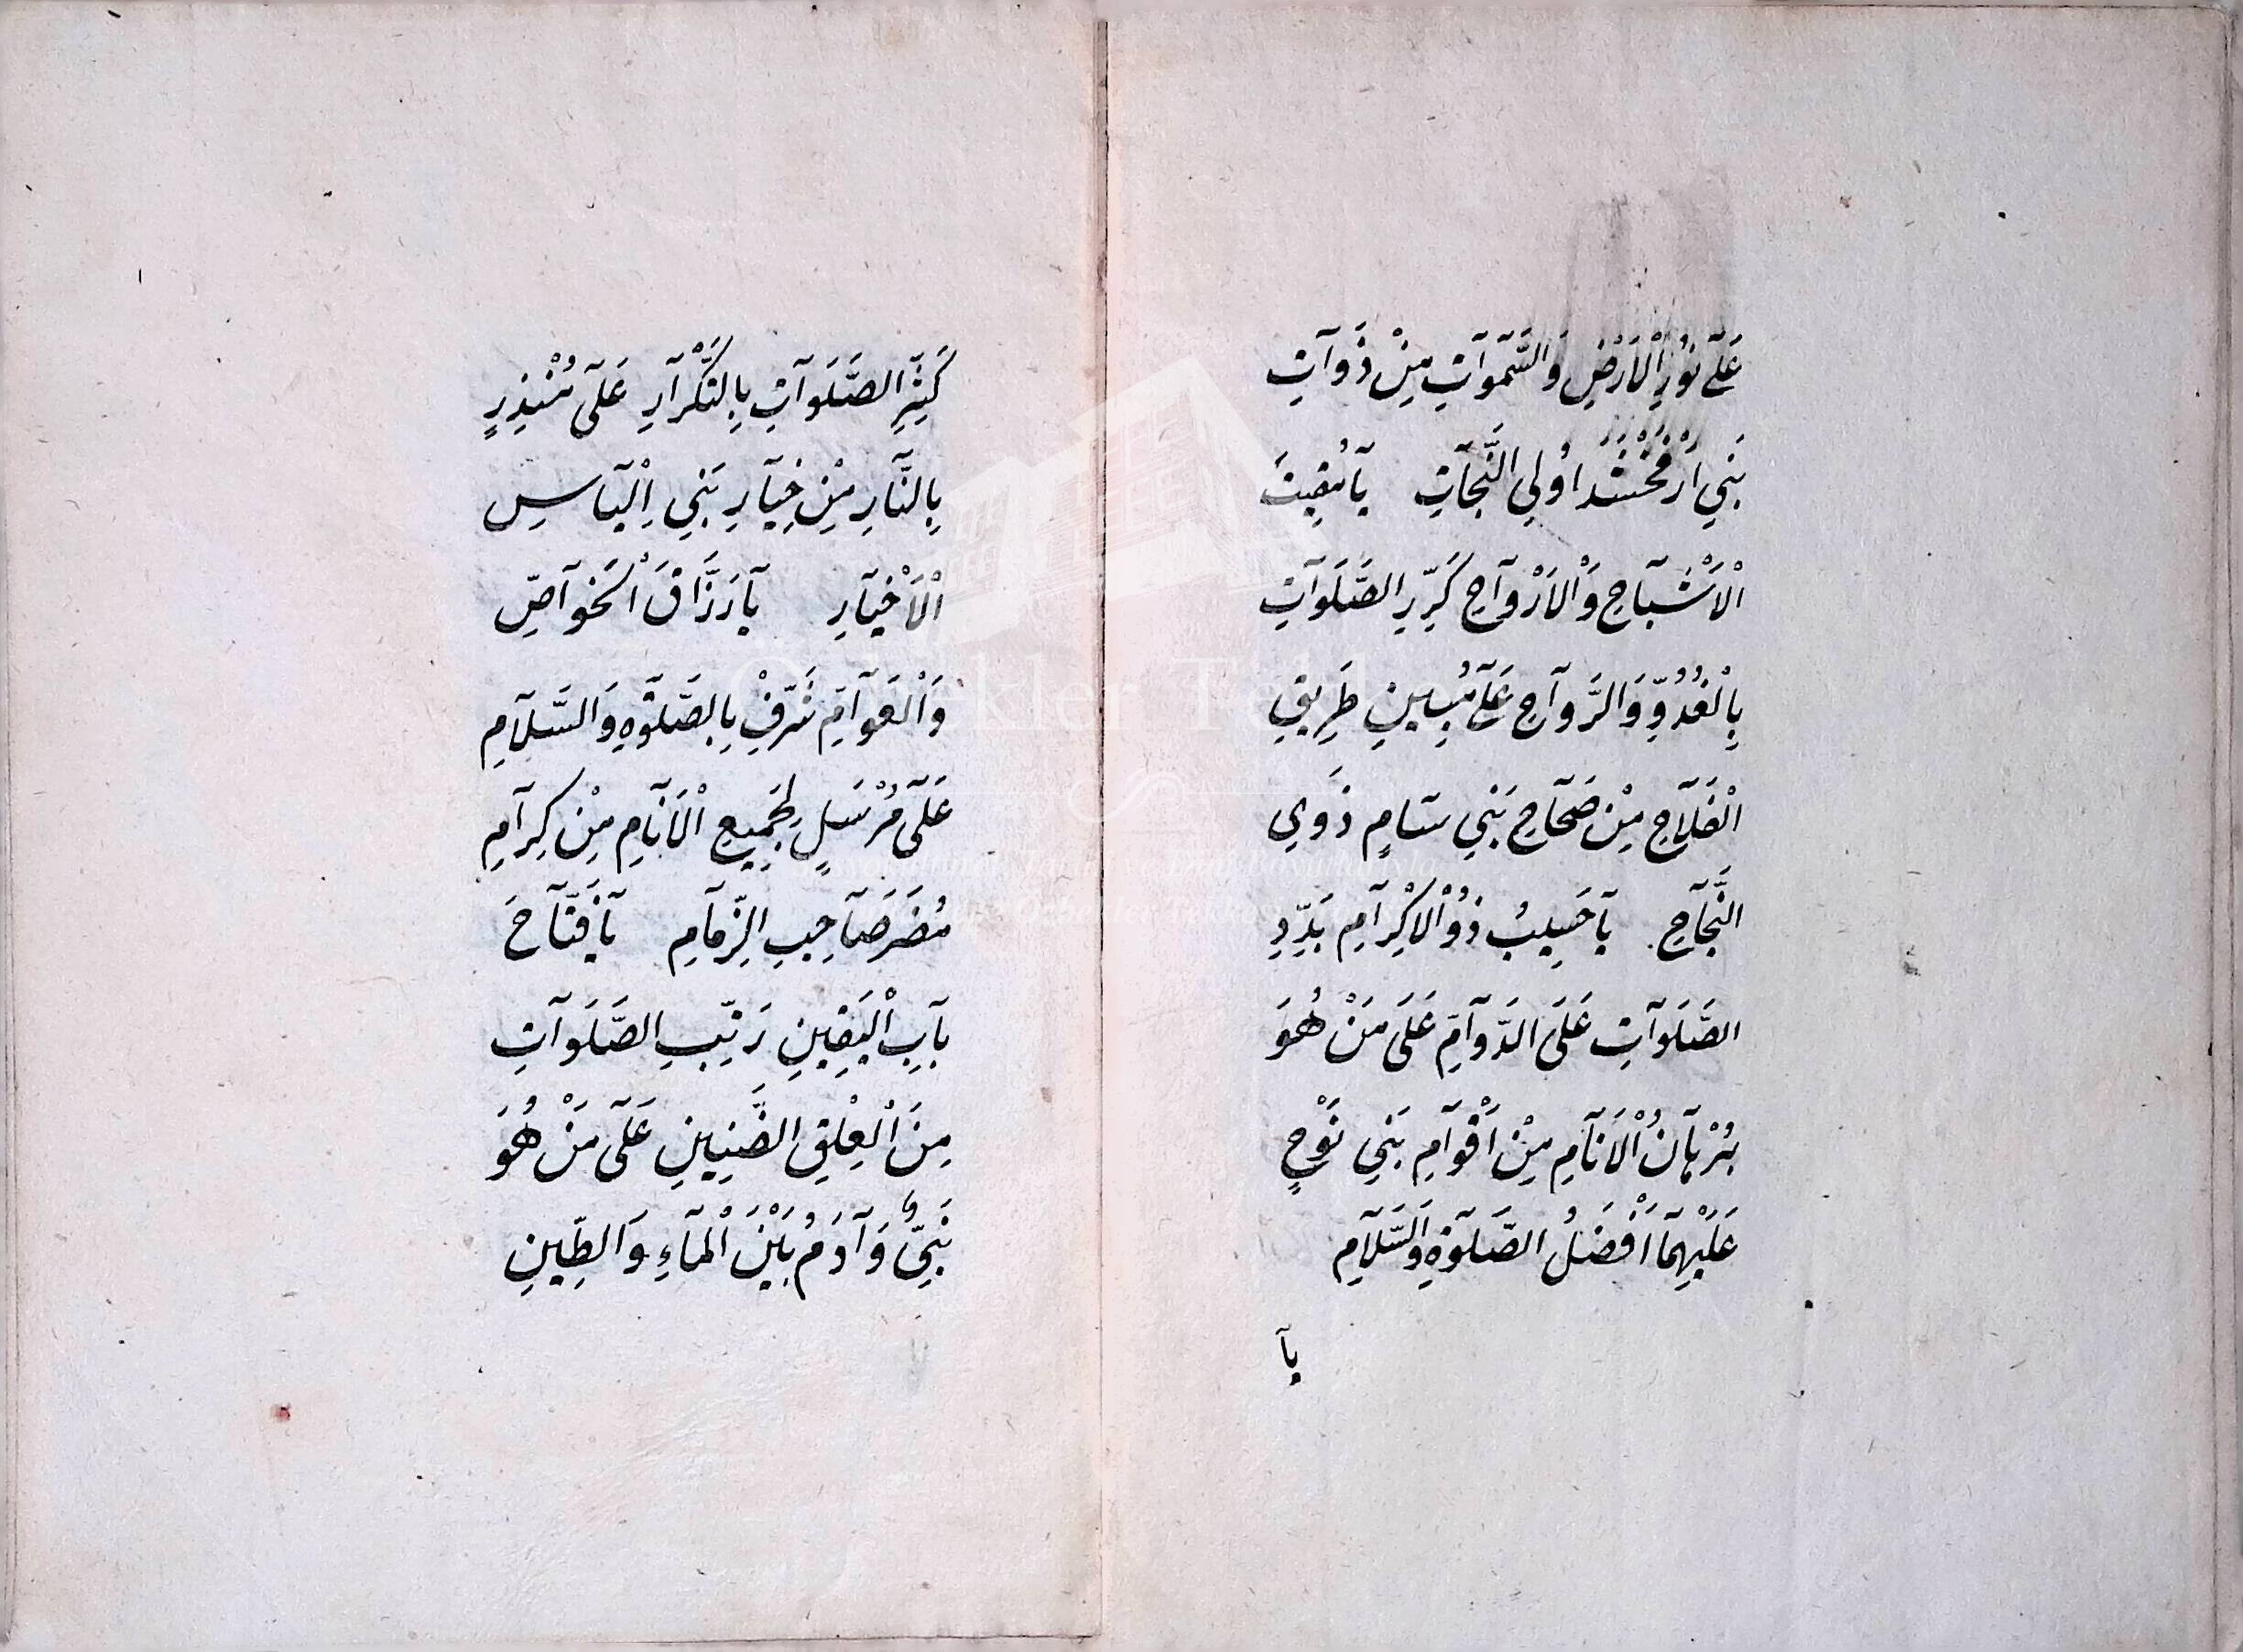 عَلَى نُورِ الْاَرْضِ وَالسَّمٰوَاتِ مِنْ ذَوَآتِ
بَنِي اَرْفَخْشَد اُولِي النَّجَآتِ يَا مُقِيتَ
الْاَشْبَآحِ وَالْاَرْوَآحِ كَرِّرِ الصَّلَوَآتِ
بِالْغُدُوِّ وَالرَّوَآحِ عَلَى مُبِينِ طَرِيقِ
الْفَلَآحِ مِنْ صَحَآحِ بَنِي سَامٍ ذَوِي
النَّجَآحِ يَا حَسِيبُ ذُو الْاِكْرَآمِ بَدِّدِ
الصَّلَوَآتِ عَلَى الدَّوَآمِ عَلَى مَنْ هُوَ
بُرْهَانُ الْاَنَآمِ مِنْ اَقْوَآمِ بَنِي نَوْحٍ
عَلَيْهِمَآ اَفْضَلُ الصَّلَوٰةِ وَالسَّلَآمِ
يَآ
كَثِّرِ الصَّلَوَآتِ بِالتَّكْرَآرِ عَلَى مُنْذِرٍ
بِالنَّآرِ مِنْ خِيَآرِ بَنِي اِلْيَآسِ
الْاَخْيَآرِ يَآ رَزَّاقَ الْخَوَآصِّ
وَالْعَوَآمِّ شَرِّفْ بِالصَّلٰوةِ وَالسَّلَآمِ
عَلَى مُرْسَلٍ لِجَمِيعِ الْاَنَآمِ مِنْ كِرَآمِ
مُضَرَ صَاحِبِ الزِّمَآمِ يَا فَتَّآحَ
بَآبِ الْيَقِينِ رَتِّبِ الصَّلَوَآتِ
مِنَ الْعِلْقِ الضَّنِينِ عَلَى مَنْ هُوَ
نَبِىٌّ وَآدَمُ بَيْنَ الْمَآءِ وَالطِّينِ